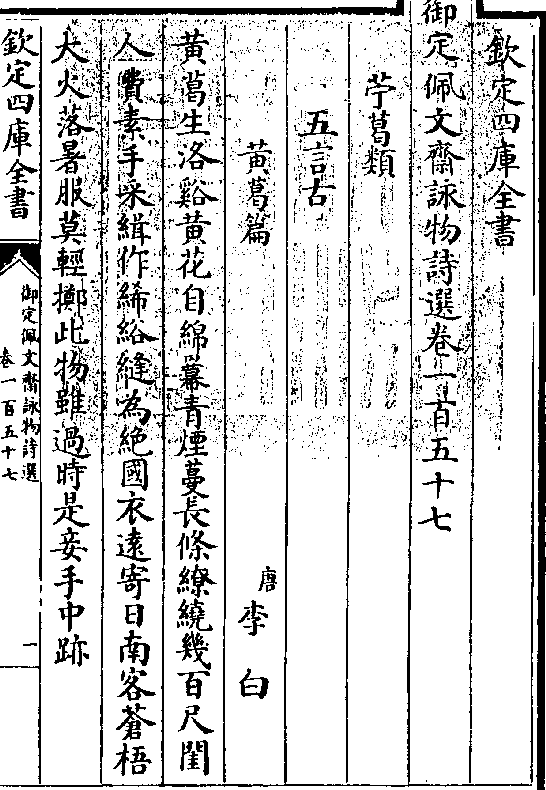 欽定四庫全書
御定佩文齋詠物詩選卷一百五十七
苧葛類
五言古
黃葛篇
唐李白
黃葛生洛谿黃花自綿羃青煙蔓長條繚繞幾百尺閨
人費素手采緝作絺綌縫為絶國衣遠寄日南客蒼梧
大火落暑服莫輕擲此物雖過時是妾手中跡
欽定四庫全書
御定佩文齋詠物詩選
卷一百五十七
一